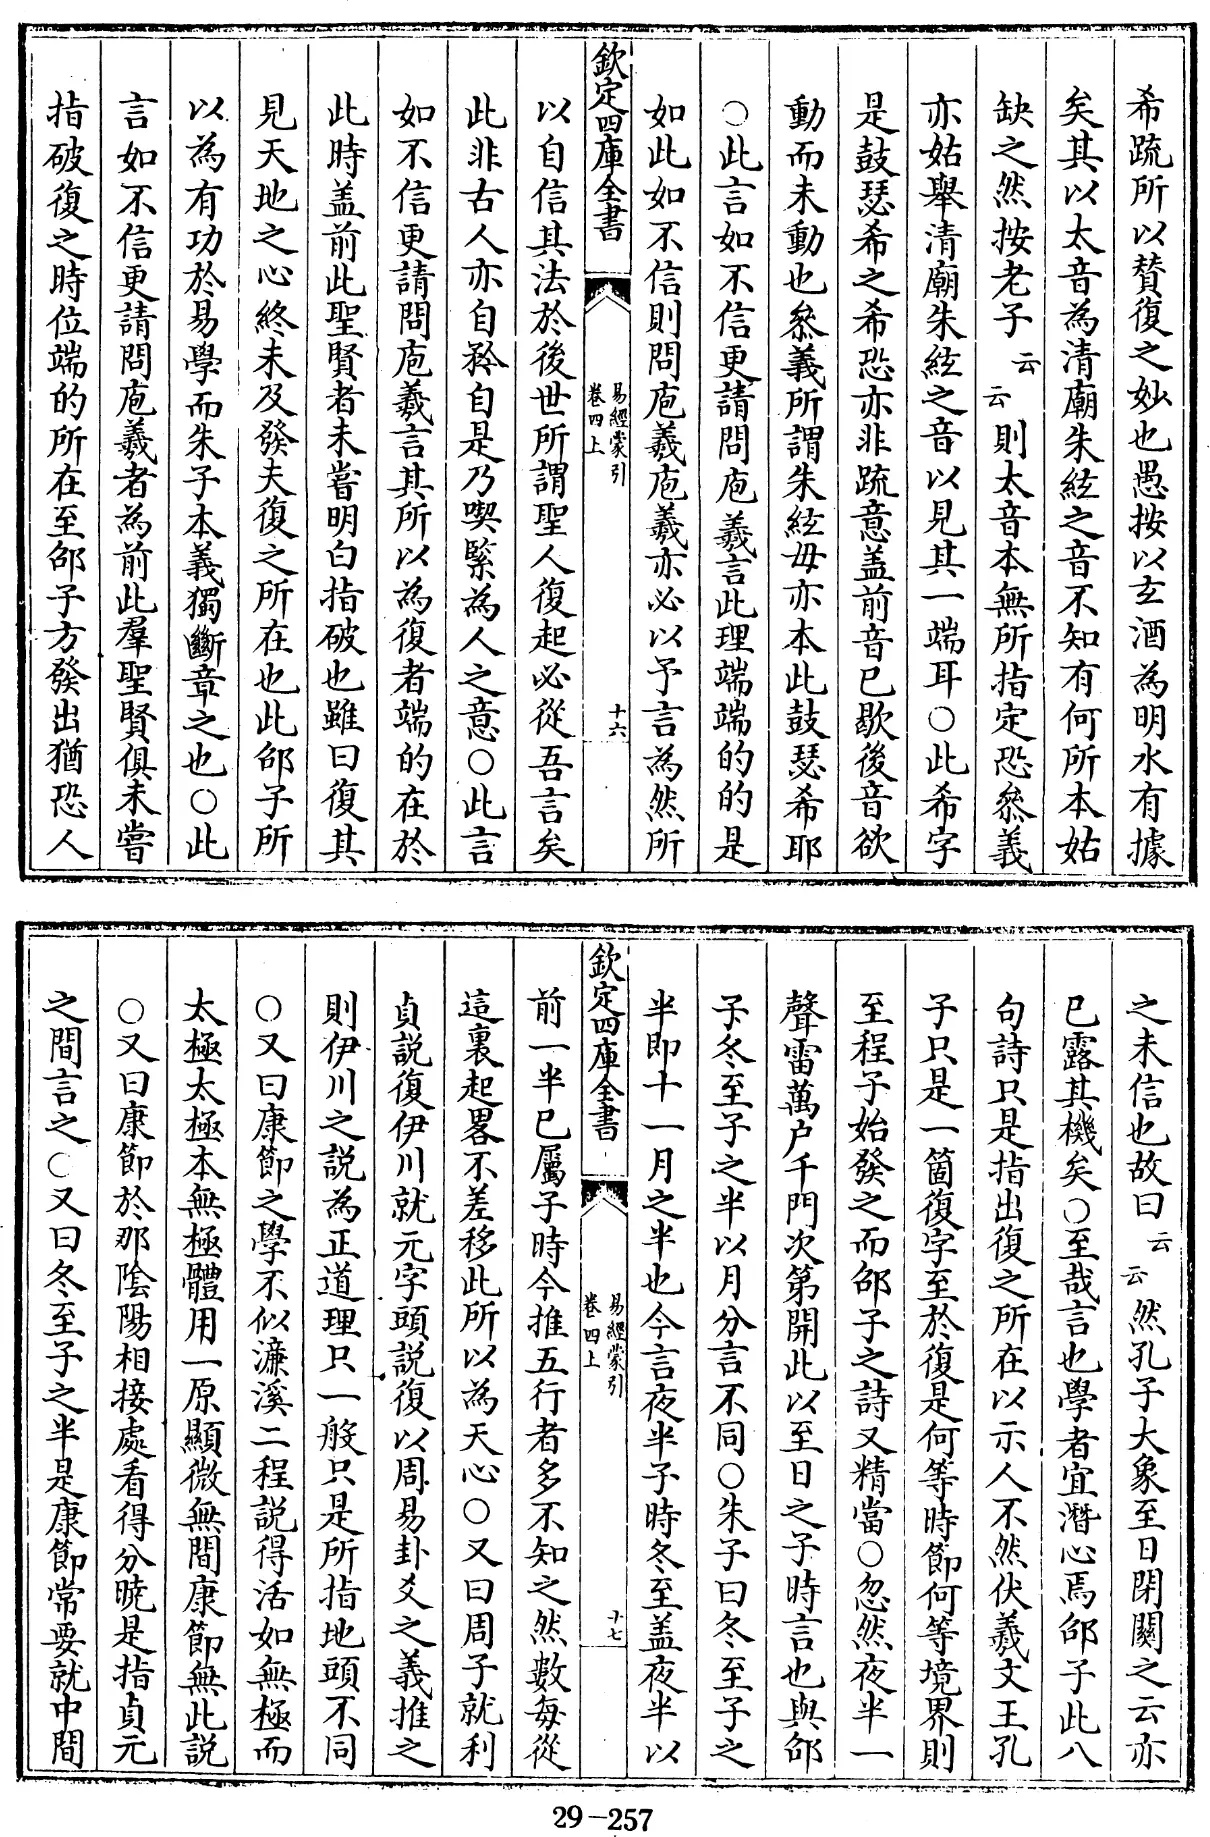 希疏所以賛復之妙也愚按以玄酒為明水有據
矣其以太音為清廟朱絃之音不知有何所本姑
缺之然按老子云云則太音本無所指定恐叅義
亦姑舉清廟朱絃之音以見其一端耳○此希字
是鼓瑟希之希恐亦非疏意盖前音已歇後音欲
動而未動也叅義所謂朱絃毋亦本此鼓瑟希耶
○此言如不信更請問庖羲言此理端端的的是
如此如不信則問庖羲庖羲亦必以予言為然所
欽定四庫全書
易經蒙引
卷四上
十六
以自信其法於後世所謂聖人復起必從吾言矣
此非古人亦自矜自是乃喫緊為人之意○此言
如不信更請問庖羲言其所以為復者端的在於
此時盖前此聖賢者未嘗明白指破也雖曰復其
見天地之心終未及發夫復之所在也此邵子所
以為有功於易學而朱子本義獨斷章之也○此
言如不信更請問庖羲者為前此羣聖賢俱未嘗
指破復之時位端的所在至邵子方發出猶恐人
之未信也故曰云云然孔子大象至日閉關之云亦
已露其機矣○至哉言也學者宜潛心焉邵子此八
句詩只是指出復之所在以示人不然伏羲文王孔
子只是一箇復字至於復是何等時節何等境界則
至程子始發之而邵子之詩又精當○忽然夜半一
聲雷萬户千門次第開此以至日之子時言也與邵
子冬至子之半以月分言不同○朱子曰冬至子之
半即十一月之半也今言夜半子時冬至盖夜半以
欽定四庫全書
易經蒙引
卷四上
十七
前一半已屬子時今推五行者多不知之然數每從
這裏起畧不差移此所以為天心○又曰周子就利
貞説復伊川就元字頭説復以周易卦爻之義推之
則伊川之説為正道理只一般只是所指地頭不同
○又曰康節之學不似濂溪二程説得活如無極而
太極太極本無極體用一原顯微無間康節無此説
○又曰康節於那陰陽相接處看得分曉是指貞元
之間言之○又曰冬至子之半是康節常要就中間
29-257